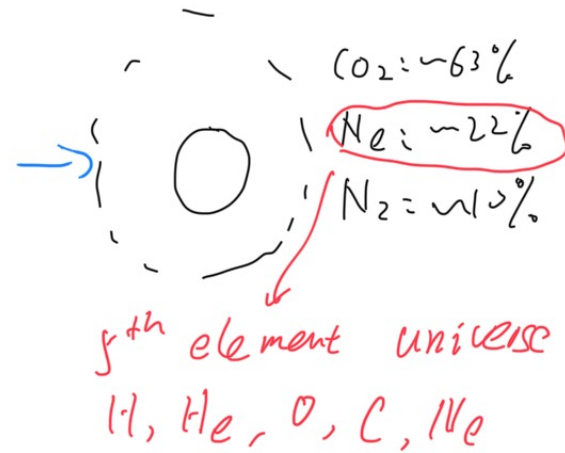 CO2: ~63%
Ne: ~22%
N2: ~10%
5th element universe
H, He, O, C, Ne